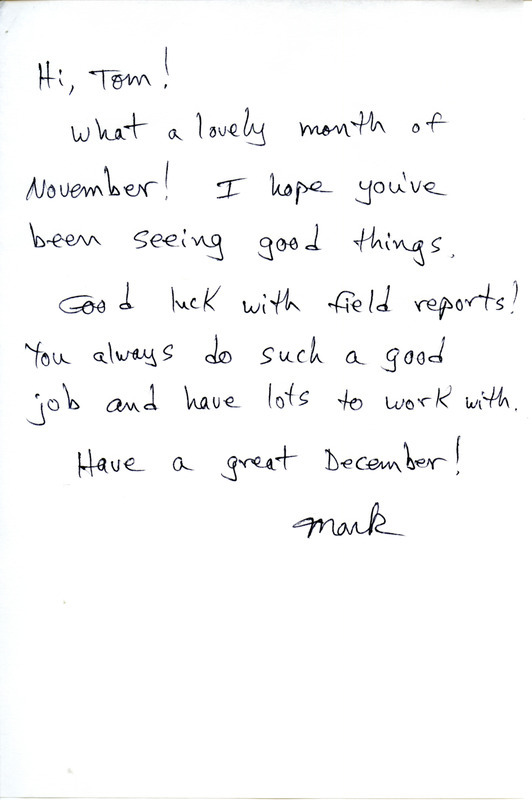 Hi, Tom!
What a lovely month of
November! I hope you've
been seeing good things.
Good luck with field reports!
You always do such a good
job and have lots to work with.
Have a great December!
Mark